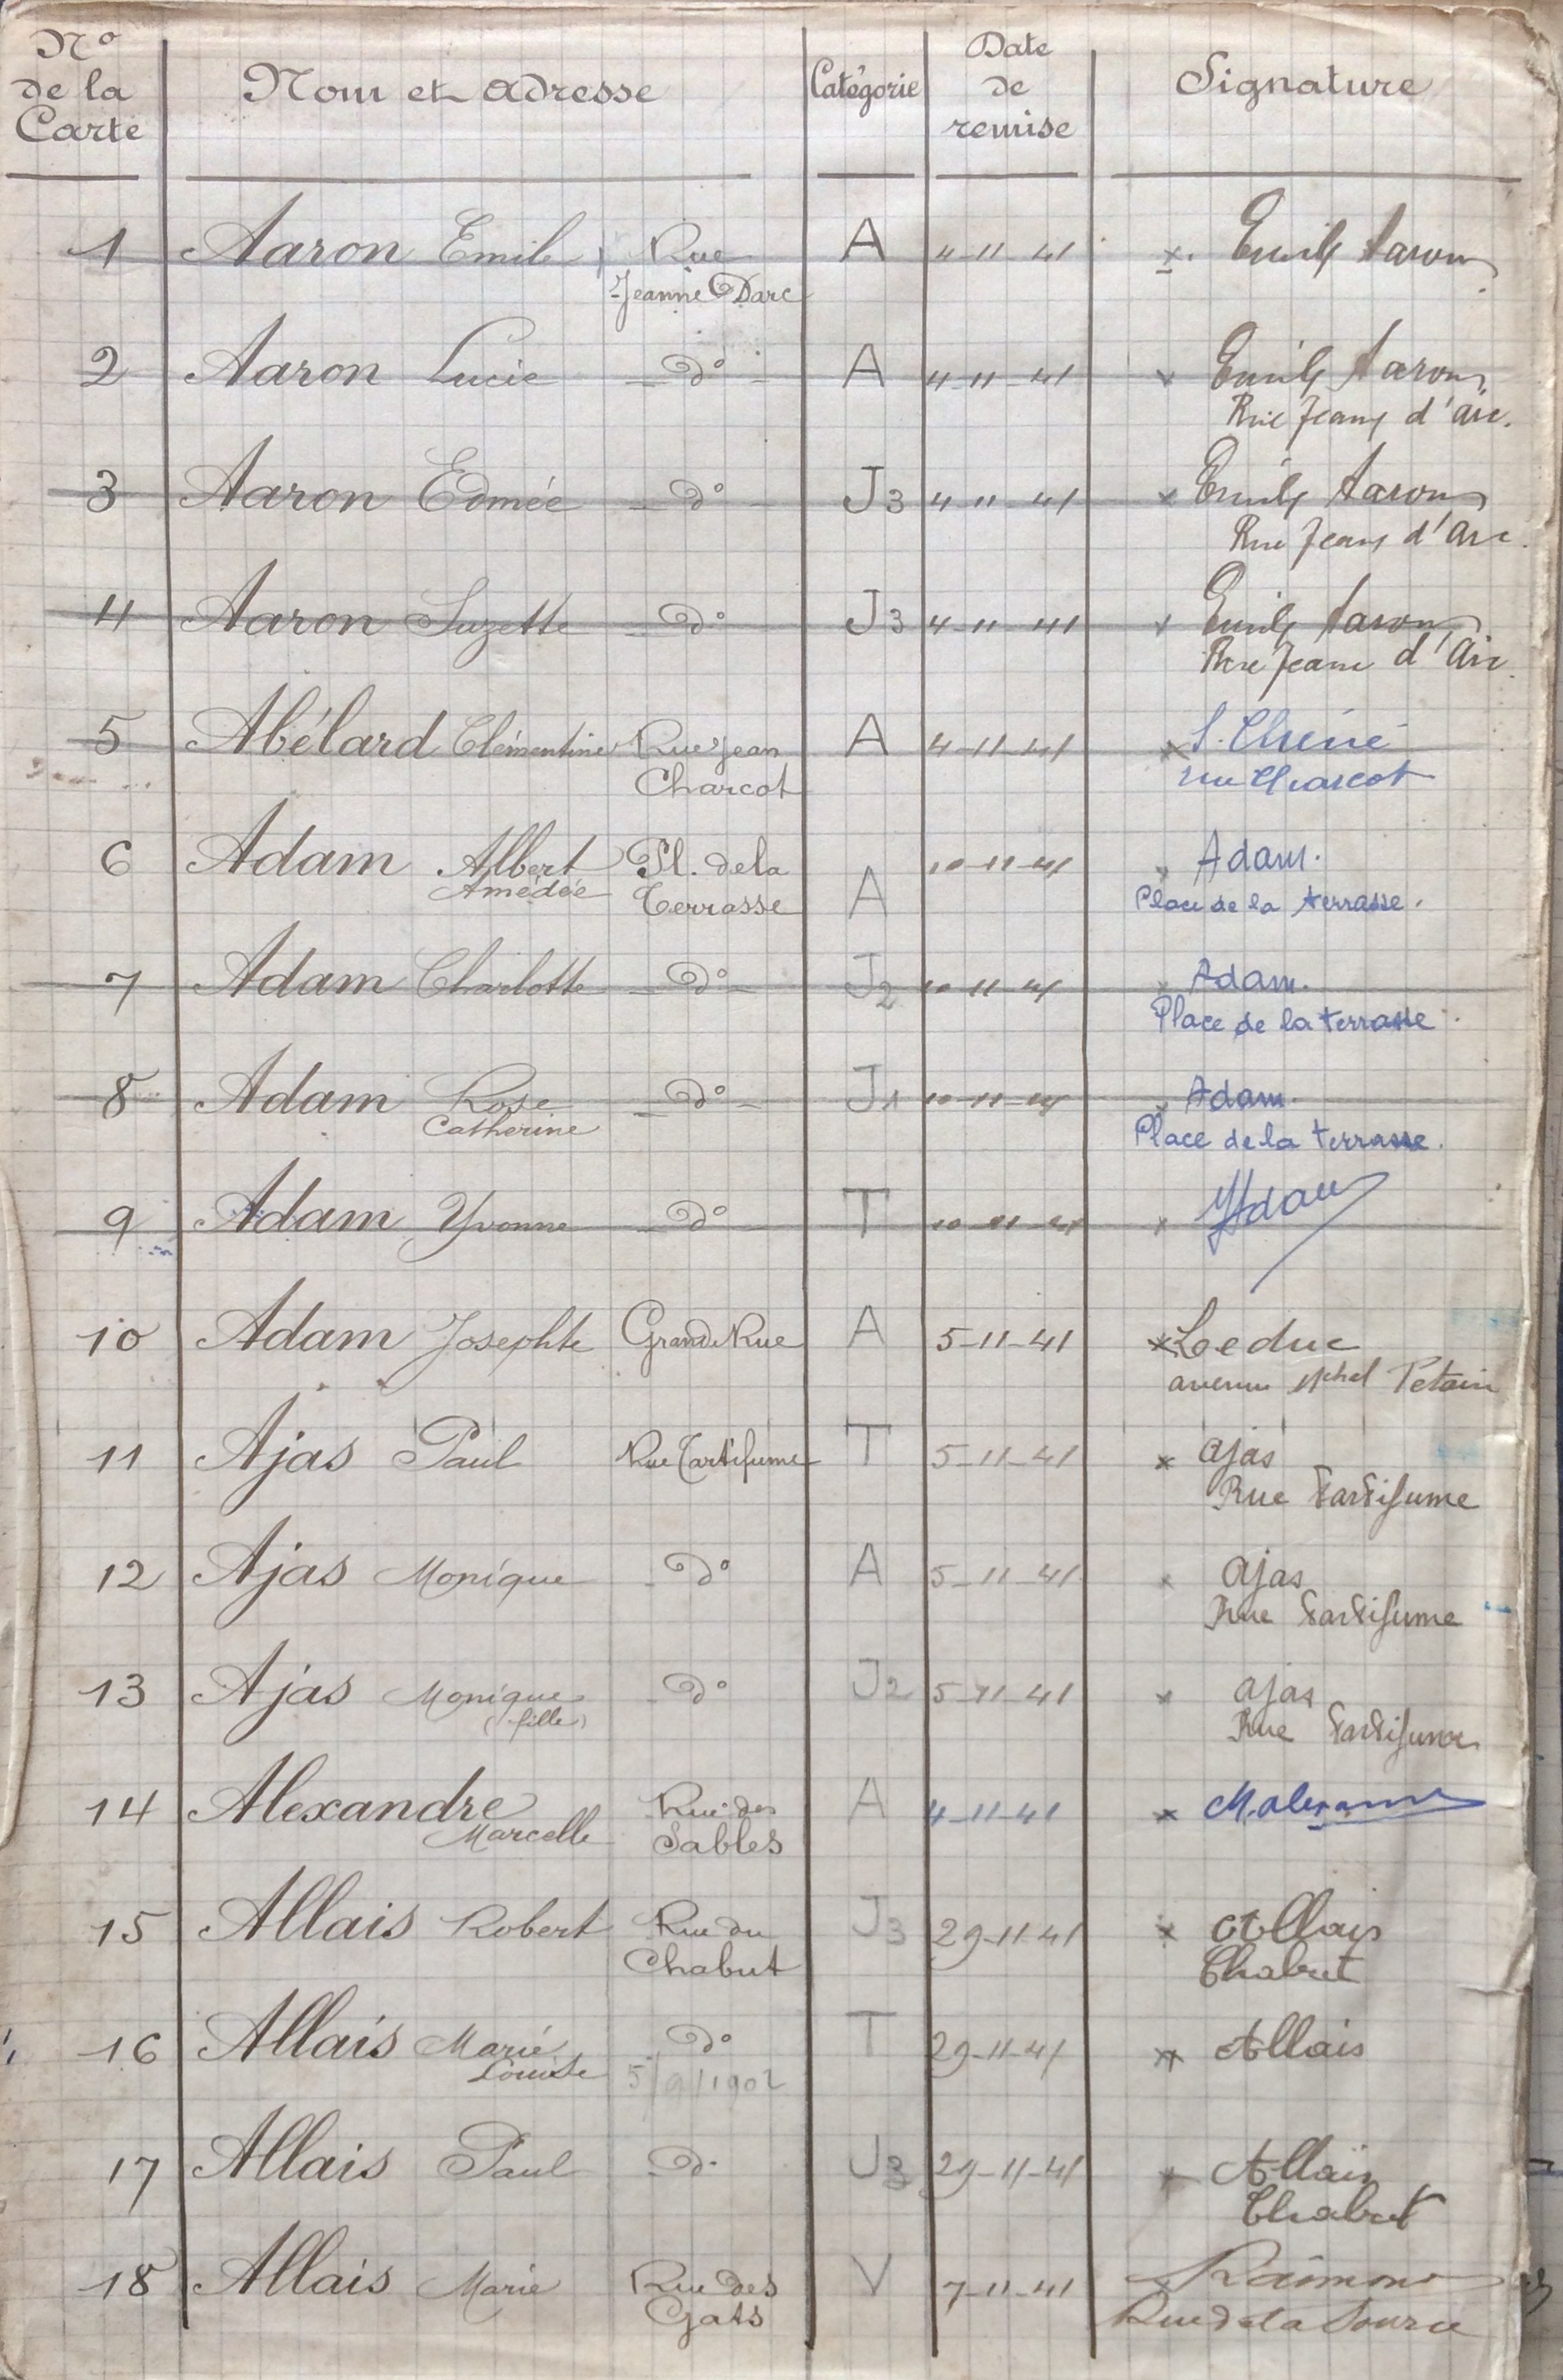 N° de la Carte | Nom et adresse | Catégorie | Date de remise | Signature
1 Aaron Emile Rue A 4-11-41 x. Emile Aaron
Jeanne Darc
2 Aaron Lucie d° A 4-11-41 x Emile Aaron
Rue Jeanne d'Arc.
3 Aaron Edmée d° J3 4-11-41 x Emile Aaron
Rue Jeanne d'Arc.
4 Aaron Suzette d° J3 4-11-41 x Emile Aaron
Rue Jeanne d'Arc.
5 Abélard Clémentine Rue Jean A 4-11-41 x
Charcot rue Charcot
6 Adam Albert Pl. de la A 10-11-41 x Adam.
Amédée Terrasse Place de la terrasse.
7 Adam Charlotte d° J2 10-11-41 x Adam.
Place de la terrasse.
8 Adam Rose d° J1 10-11-41 x Adam.
Catherine Place de la terrasse.
9 Adam Yvonne d° T 10-11-41 x YAdam
10 Adam Josephte Grande Rue A 5-11-41 x Leduc
avenue Mchal Petain
11 Ajas Paul Rue Tartifume T 5-11-41 x ajas
Rue Tartifume
12 Ajas Monique d° A 5-11-41 x ajas
Rue Tartifume
13 Ajas Monique d° J2 5-11-41 x ajas
(fille) Rue Tartifume
14 Alexandre Rue des A 4-11-41 x
Marcelle Sables
15 Allais Robert Rue du J3 29-11-41 x Allais
Chabut Chabut
16 Allais Marie d° T 29-11-41 x Allais
Louise 5/9/1902
17 Allais Paul d° J3 29-11-41 x Allais
Chabut
18 Allais Marie Rue des V 7-11-41 x
Gats Rue de la Source